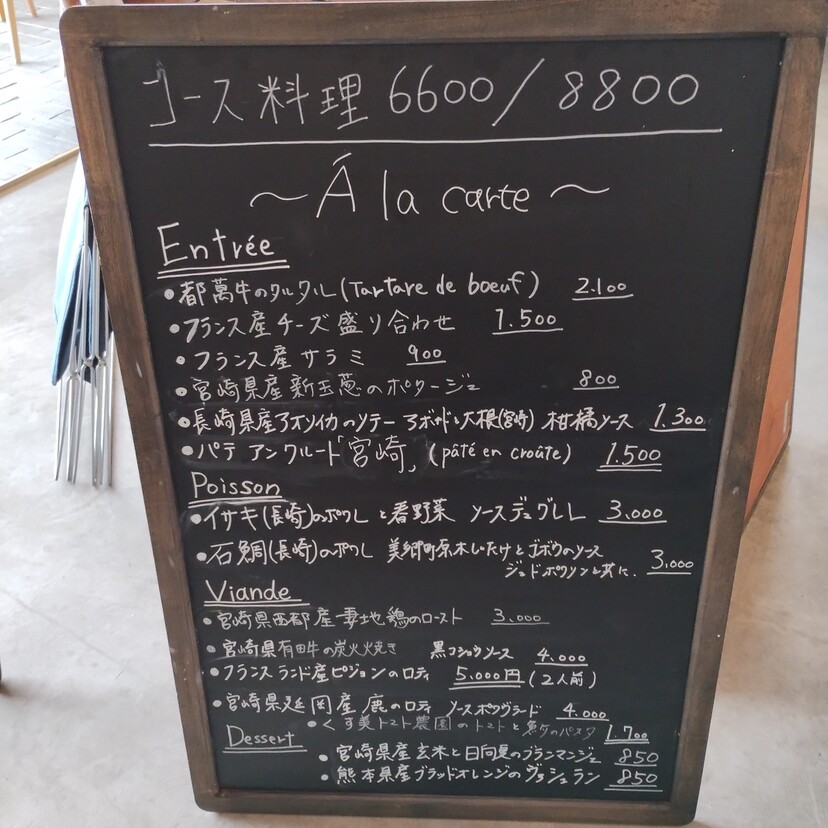 コース料理 6600/8800
〜Á la carte〜
Entrée
•都萬牛のタルタル(Tartare de boeuf) 2.100
•フランス産チーズ盛り合わせ 1.500
•フランス産サラミ 900
•宮崎県産新玉葱のポタージュ 800
•長崎県産アオリイカのソテー アボカドと大根(宮崎) 柑橘ソース 1.300
•パテ アンクルート「宮崎」(pâté en croûte) 1.500
Poisson
•イサキ(長崎)のポワレ と春野菜 ソースデュグレレ 3,000
•石鯛(長崎)のポワレ 美郷町原木しいたけとゴボウのソース
ジュドポワソンと共に. 3,000
Viande
•宮崎県西都産妻地鶏のロースト 3,000
•宮崎県有田牛の炭火焼き 黒コショウソース 4.000
•フランス ランド産ピジョンのロティ 5,000円(2人前)
•宮崎県延岡産 鹿のロティ ソースポワヴラード 4.000
•くす美トマト農園のトマトと のパスタ 1.700
Dessert
•宮崎県産玄米と日向夏のブランマンジェ 850
•熊本県産ブラッドオレンジのヴァシュラン 850